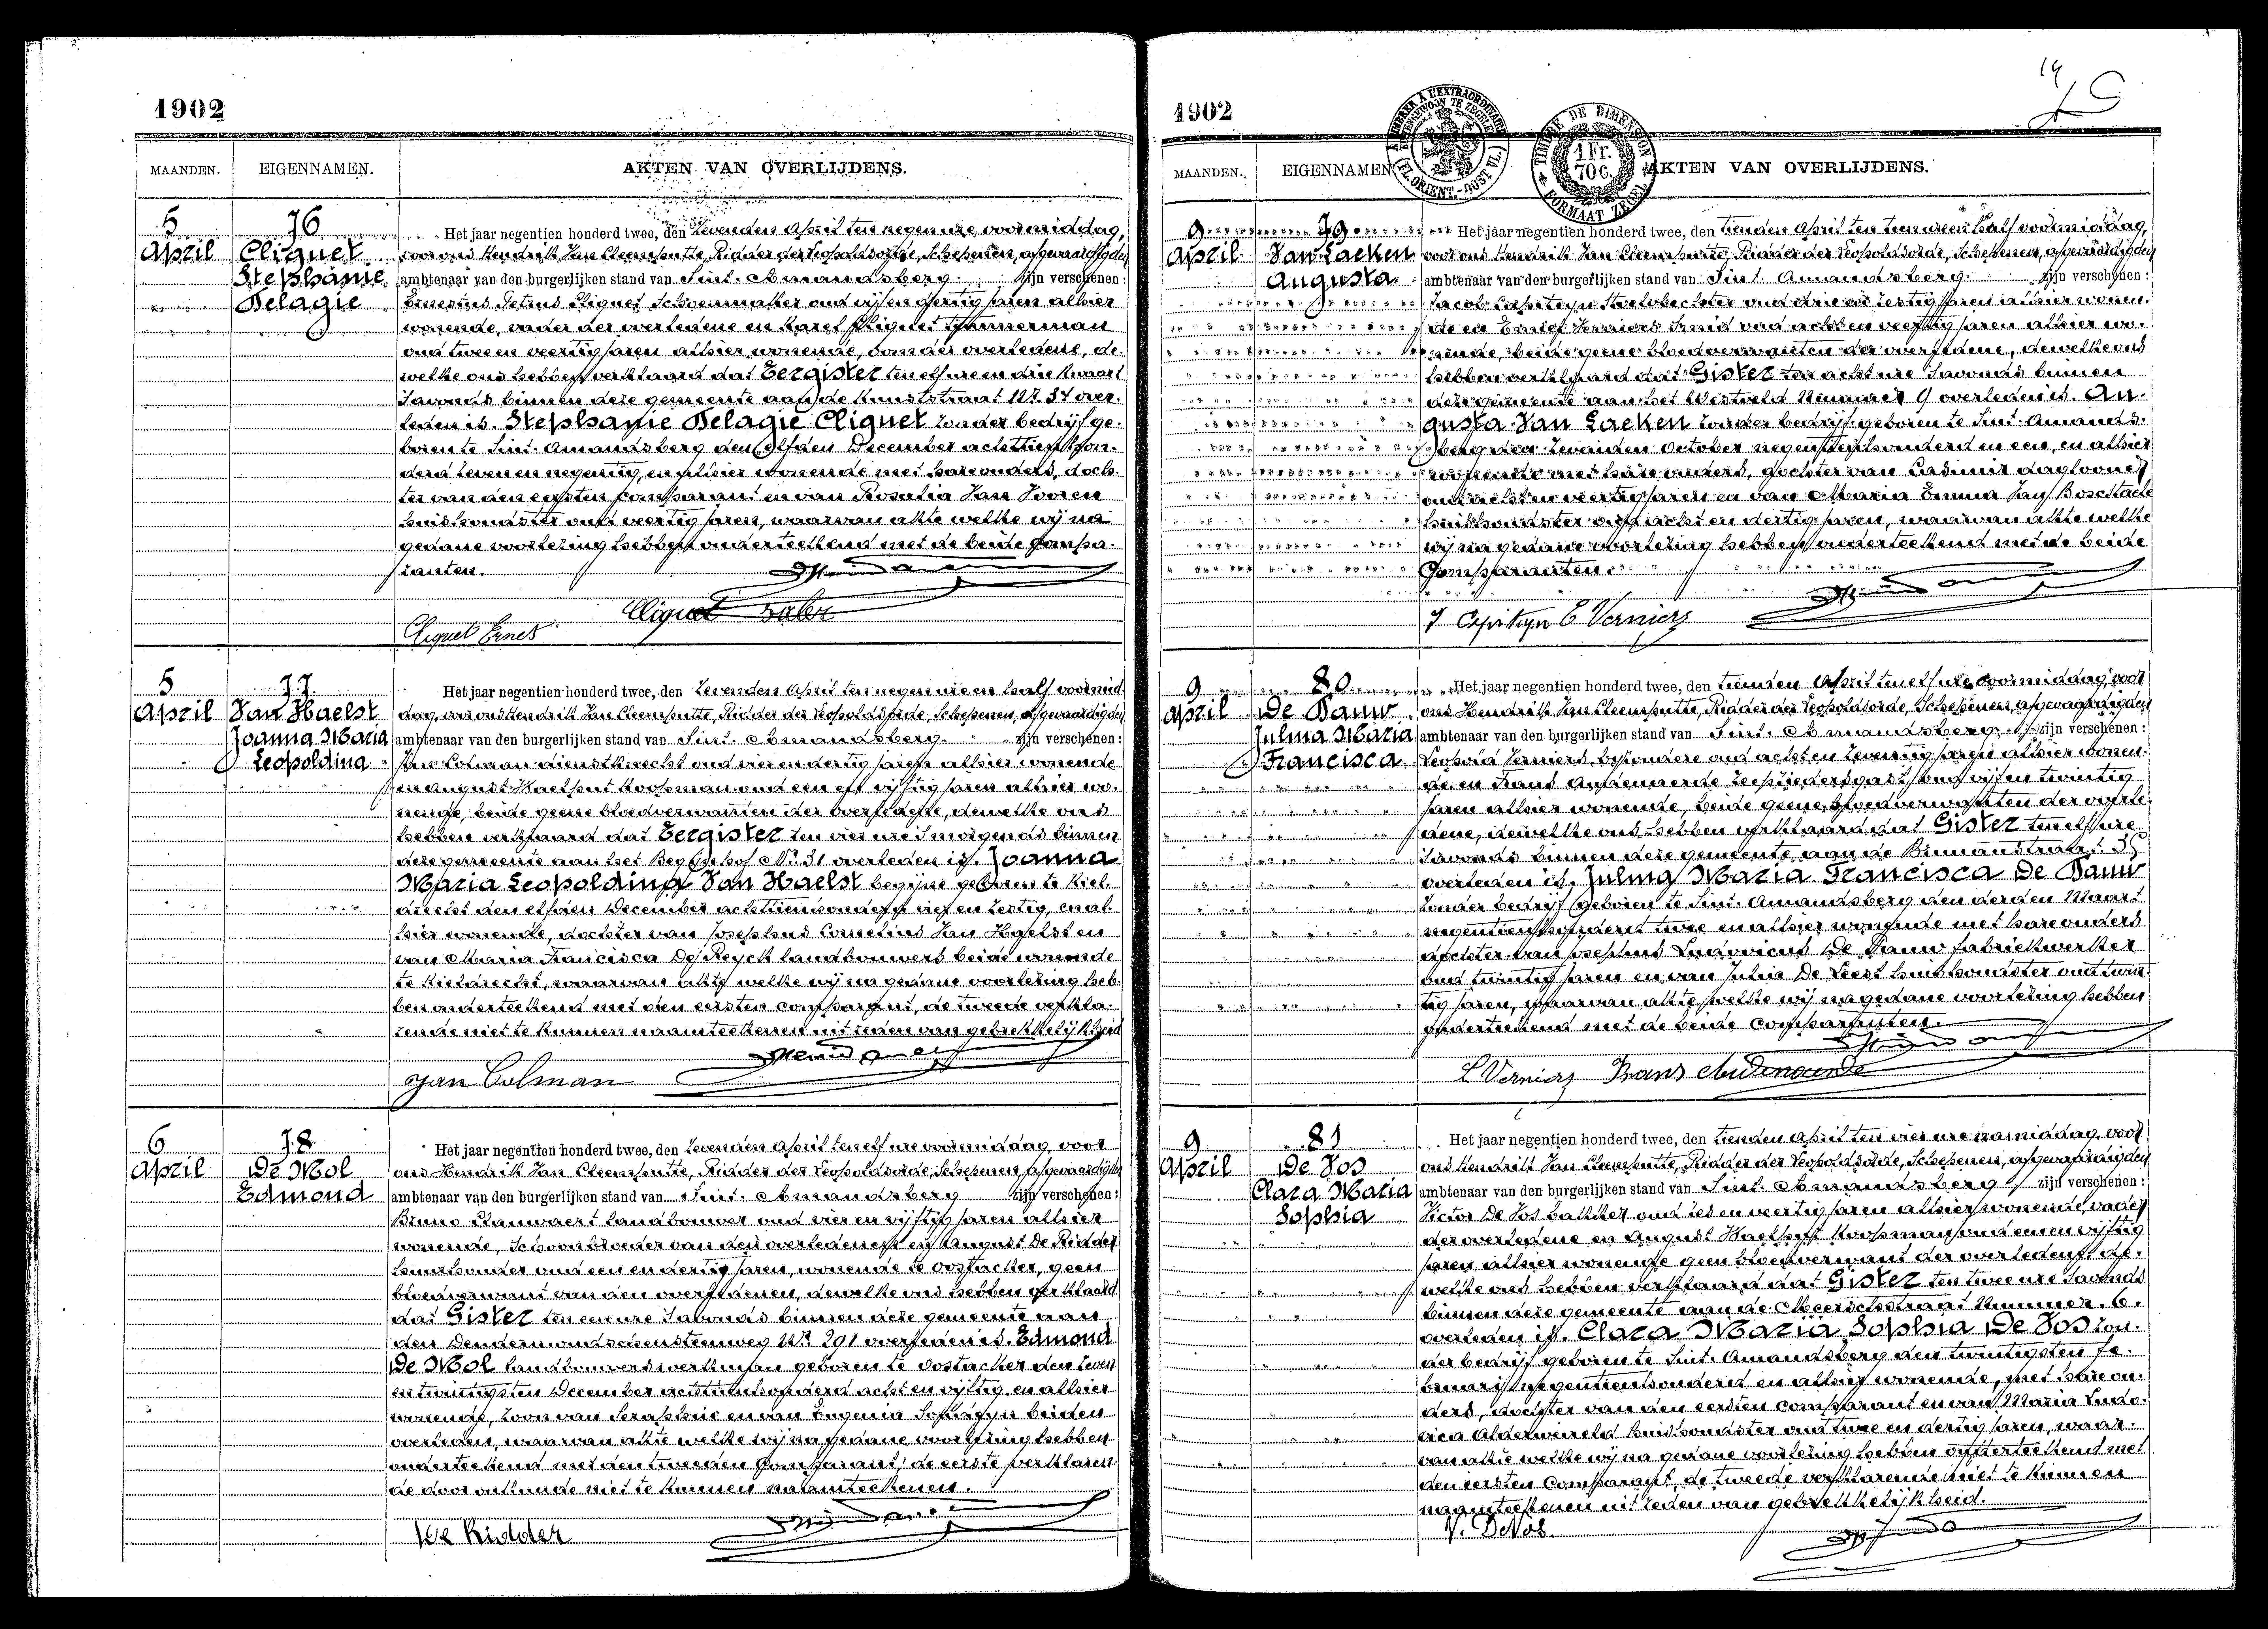 1902
MAANDEN. EIGENNAMEN. AKTEN VAN OVERLIJDENS.
5 76 Het jaar negentien honderd twee, den zevenden April ten negen ure voormiddag,
April Cliquet voor ons Hendrik Van Cleemputte, Ridder der Leopoldsorde, Schepenen, afgevaardigden
Stephanie ambtenaar van den burgerlijken stand van Sint. Amandsberg zijn verschenen:
Pelagie Ernestus Petrus Cliquet Schoenmaker oud vijf en veertig jaren alhier
wonende, vader der overledene en Karel Cliquet Timmerman
oud twee en veertig jaren alhier wonende, oom der overledene, de-
welke ons hebben verklaard dat Eergister ten elf ure en drie kwaart
s'avonds binnen deze gemeente aan de Kunststraat Nr. 34 over-
leden is. Stephanie Pelagie Cliquet zonder bedrijf ge-
boren te Sint. Amandsberg den elfden December achttien hon-
derd zeven en negentig, en alhier wonende met hare ouders, doch-
ter van den eersten comparant en van Rosalia Van Vooren
huishoudster oud veertig jaren, waarvan akte welke wij na
gedane voorlezing hebben onderteekend met de beide Compa-
ranten.
Cliquet Ernest
5 77 Het jaar negentien honderd twee, den zevenden April ten negen ure en half voormid-
April Van Haelst dag, voor ons Hendrik Van Cleemputte, Ridder der Leopoldsorde, Schepenen, afgevaardigden
Joanna Maria ambtenaar van den burgerlijken stand van Sint. Amandsberg zijn verschenen:
Leopoldina Jan Colman dienstknecht oud vier en dertig jaren alhier wonende
en August Haelput Koopman oud een en vijftig jaren alhier wo-
nende, beide geene bloedverwanten der overledene, dewelke ons
hebben verklaard dat Eergister ten vier ure s'morgends binnen
deze gemeente aan het Begijnhof Nr. 31 overleden is. Joanna
Maria Leopoldina Van Haelst begijne geboren te Kiel-
drecht den elfden December achttienhonderd vier en zestig, en al-
hier wonende, dochter van Josephus Cornelius Van Haelst en
van Maria Francisca De Reyck landbouwers beide wonende
te Kieldrecht, waarvan akte welke wij na gedane voorlezing heb-
ben onderteekend met den eersten comparant, de tweede verkla-
rende niet te kunnen naamteekenen uit reden van gebrekkelijkheid
Jan Colman
6 78 Het jaar negentien honderd twee, den zevenden April ten elf ure voormiddag, voor
April De Mol ons Hendrik Van Cleemputte, Ridder der Leopoldsorde, Schepenen, afgevaardigden
Edmond ambtenaar van den burgerlijken stand van Sint. Amandsberg zijn verschenen:
Bruno Stauwaert landbouwer oud vier en vijftig jaren alhier
wonende, Schoonbroeder van den overledenen en August De Ridder
huurhouder oud een en dertig jaren, wonende te Oostacker, geen
bloedverwant van den overledenen, dewelke ons hebben verklaard
dat Gister ten een ure s'avonds binnen deze gemeente aan
den Dendermondschensteenweg Nr. 291 overleden is. Edmond
De Mol landbouwerswerkman geboren te Oostacker den zeven
en twintigsten December achttienhonderd acht en vijftig en alhier
wonende, zoon van Seraphin en van Eugenia beiden
overleden, waarvan akte welke wij na gedane voorlezing hebben
onderteekend met den tweeden Comparant, de eerste verklaren-
de door onkunde niet te kunnen naamteekenen.
De Ridder
1902
A L'EXTRAORDINAIRE
BUITENGEWOON TE ZEGELEN
(FL. ORIENT.-OOST VL.)
TIMBRE DE DIMENSION
1 Fr. 70 C.
FORMAAT ZEGEL
MAANDEN. EIGENNAMEN AKTEN VAN OVERLIJDENS.
9 79 Het jaar negentien honderd twee, den tienden April ten tien uren half voormiddag,
April Van Laeken voor ons Hendrik Van Cleemputte, Ridder der Leopoldsorde, Schepenen, afgevaardigden
Augusta ambtenaar van den burgerlijken stand van Sint. Amandsberg zijn verschenen:
Jacob Capiteyn Stoelvlechter oud drie en zestig jaren alhier wonen-
de en Emiel Verniers Smid oud acht en veertig jaren alhier wo-
nende, beide geene bloedverwanten der overledene, dewelke ons
hebben verklaard dat Gister ten acht ure s'avonds binnen
deze gemeente aan het Westveld Nummer 9 overleden is. Au-
gusta Van Laeken zonder bedrijf geboren te Sint. Amands-
berg den zevenden October negentienhonderd en een, en alhier
wonende met hare ouders, dochter van Casimir daglooner
oud acht en veertig jaren en van Maria Emma Van Bosstaele
huishoudster oud acht en dertig jaren, waarvan akte welke
wij na gedane voorlezing hebben onderteekend met de beide
Comparanten.
J Capiteyn E Verniers
9 80 Het jaar negentien honderd twee, den tienden April ten elf ure voormiddag, voor
April De Pauw ons Hendrik Van Cleemputte, Ridder der Leopoldsorde, Schepenen, afgevaardigden
Julma Maria ambtenaar van den burgerlijken stand van Sint. Amandsberg zijn verschenen:
Francisca Leopold Verniers bijzondere oud acht en zeventig jaren alhier wonen-
de en Frans Audenaerde oud vijf en twintig
jaren alhier wonende, beide geene bloedverwanten der overle-
dene, dewelke ons hebben verklaard dat Gister ten elf ure
s'avonds binnen deze gemeente aan de 35
overleden is. Julma Maria Francisca De Pauw
zonder bedrijf geboren te Sint. Amandsberg den derden Maart
negentienhonderd twee en alhier wonende met hare ouders
dochter van Josephus Ludovicus De Pauw fabriekwerker
oud twintig jaren en van Julia De Geest huishoudster oud twin-
tig jaren, waarvan akte welke wij na gedane voorlezing hebben
onderteekend met de beide comparanten.
L Verniers Frans Audenaerde
9 81 Het jaar negentien honderd twee, den tienden April ten vier ure namiddag, voor
April De Vos ons Hendrik Van Cleemputte, Ridder der Leopoldsorde, Schepenen, afgevaardigden
Clara Maria ambtenaar van den burgerlijken stand van Sint. Amandsberg zijn verschenen:
Sophia Victor De Vos bakker oud zes en veertig jaren alhier wonende, vader
der overledene en August Haelput Koopman oud een en vijftig
jaren alhier wonende geen bloedverwant der overledene, de-
welke ons hebben verklaard dat Gister ten twee ure s'avonds
binnen deze gemeente aan de Meerschstraat Nummer. 6.
overleden is. Clara Maria Sophia De Vos zon-
der bedrijf geboren te Sint. Amandsberg den twintigsten Fe-
bruarij negentienhonderd en alhier wonende, met hare ou-
ders, dochter van den eersten comparant en van Maria Ludo-
vica Alderweireld huishoudster oud twee en dertig jaren, waar-
van akte welke wij na gedane voorlezing hebben onderteekend met
den eersten Comparant, de tweede verklarende niet te kunnen
naamteekenen uit reden van gebrekkelijkheid.
V. DeVos